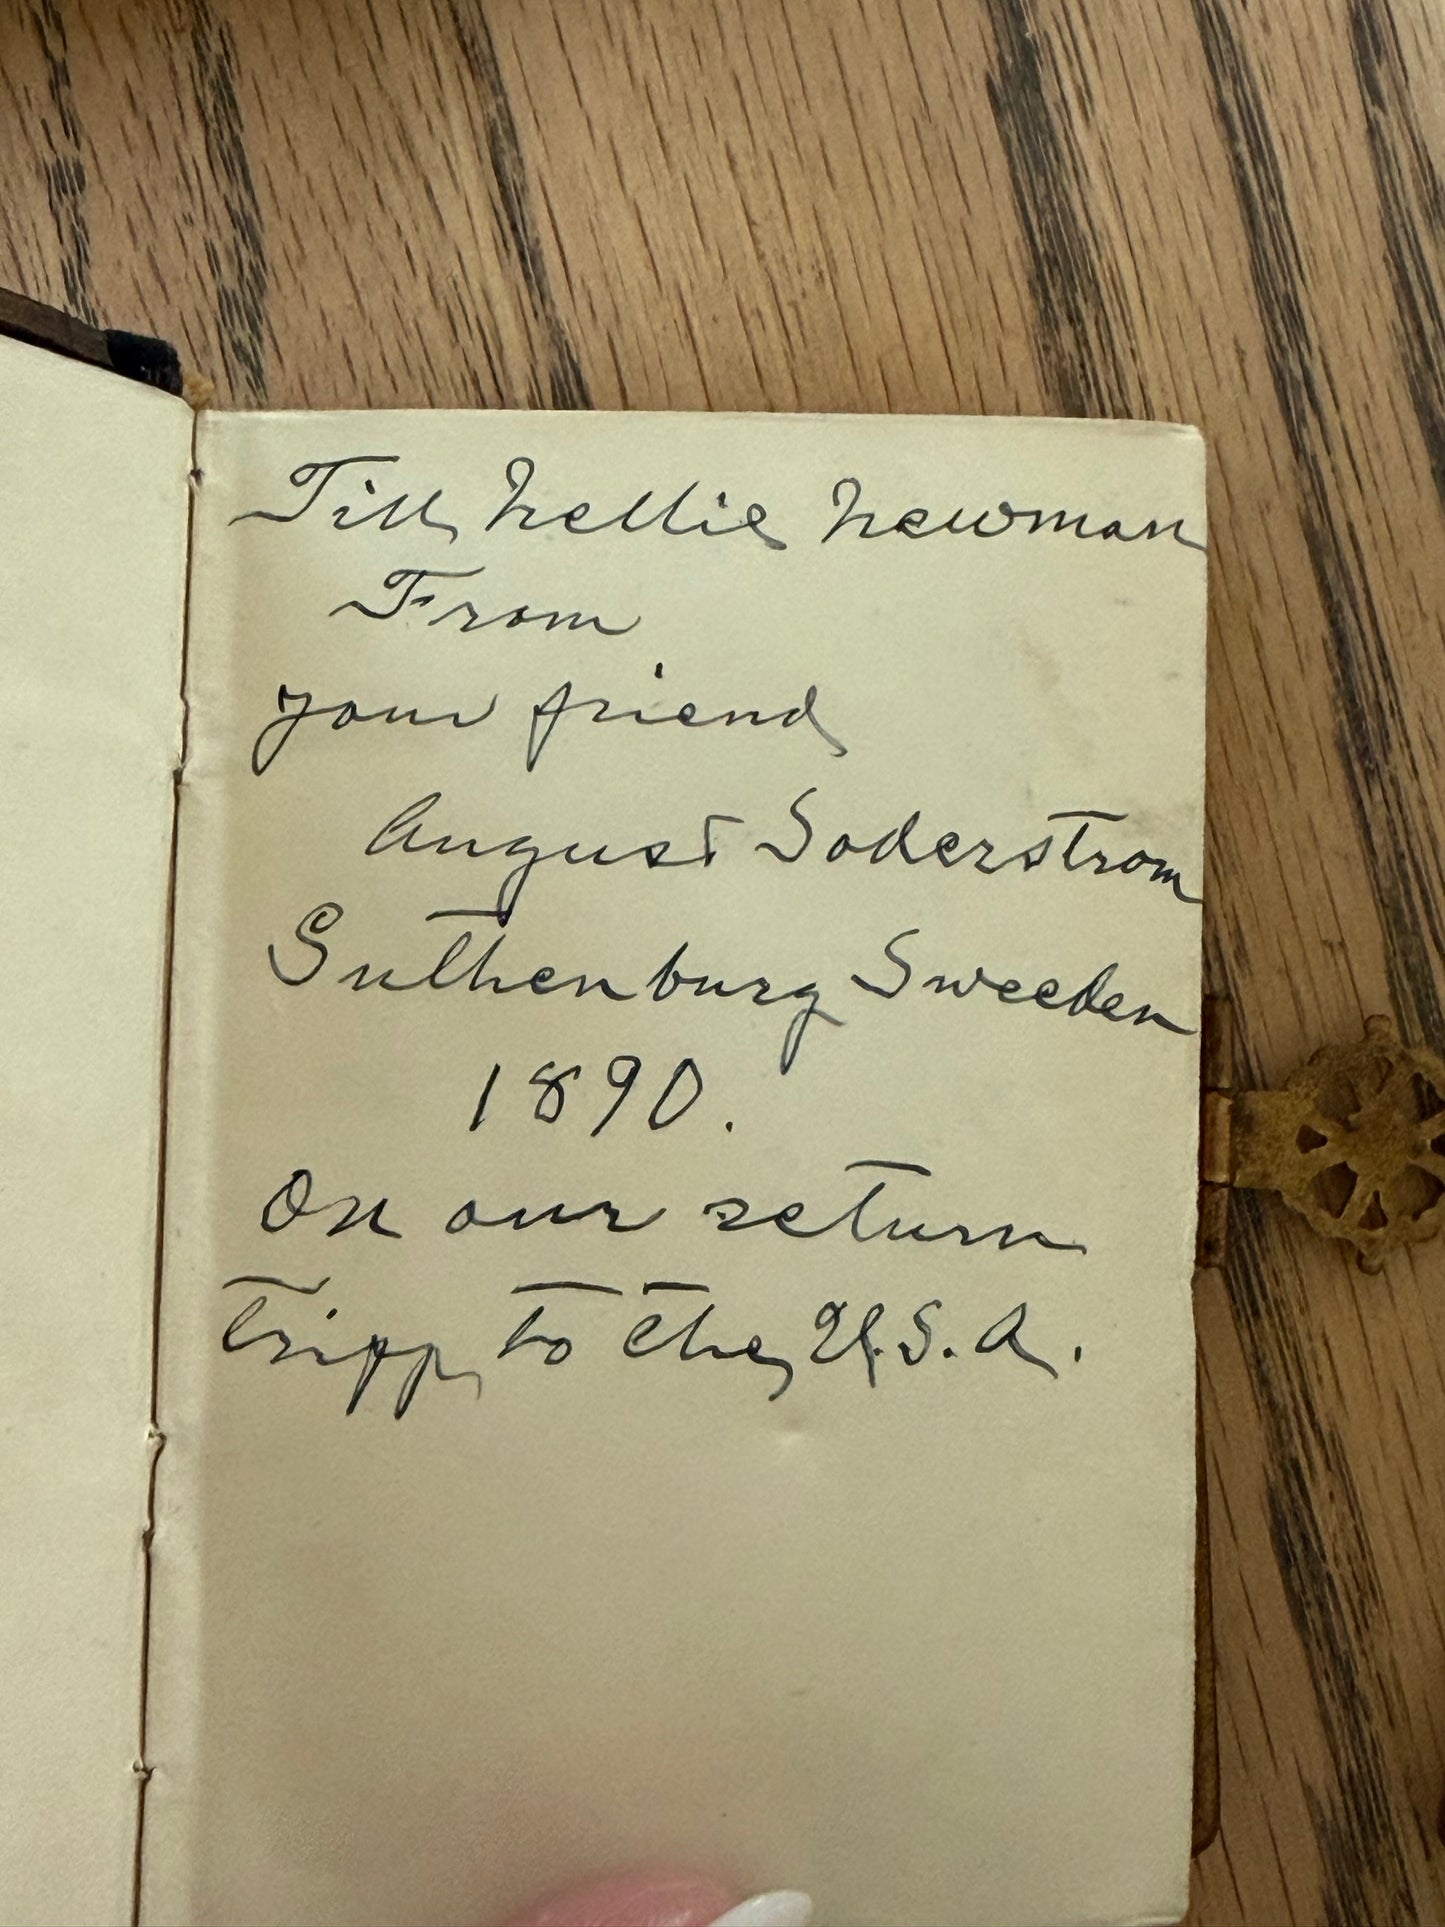 Till Nellie Newman
From
your friend
August Soderstrom
Suthenburg Sweeden
1890.
On our return
tripp to the U.S.A.